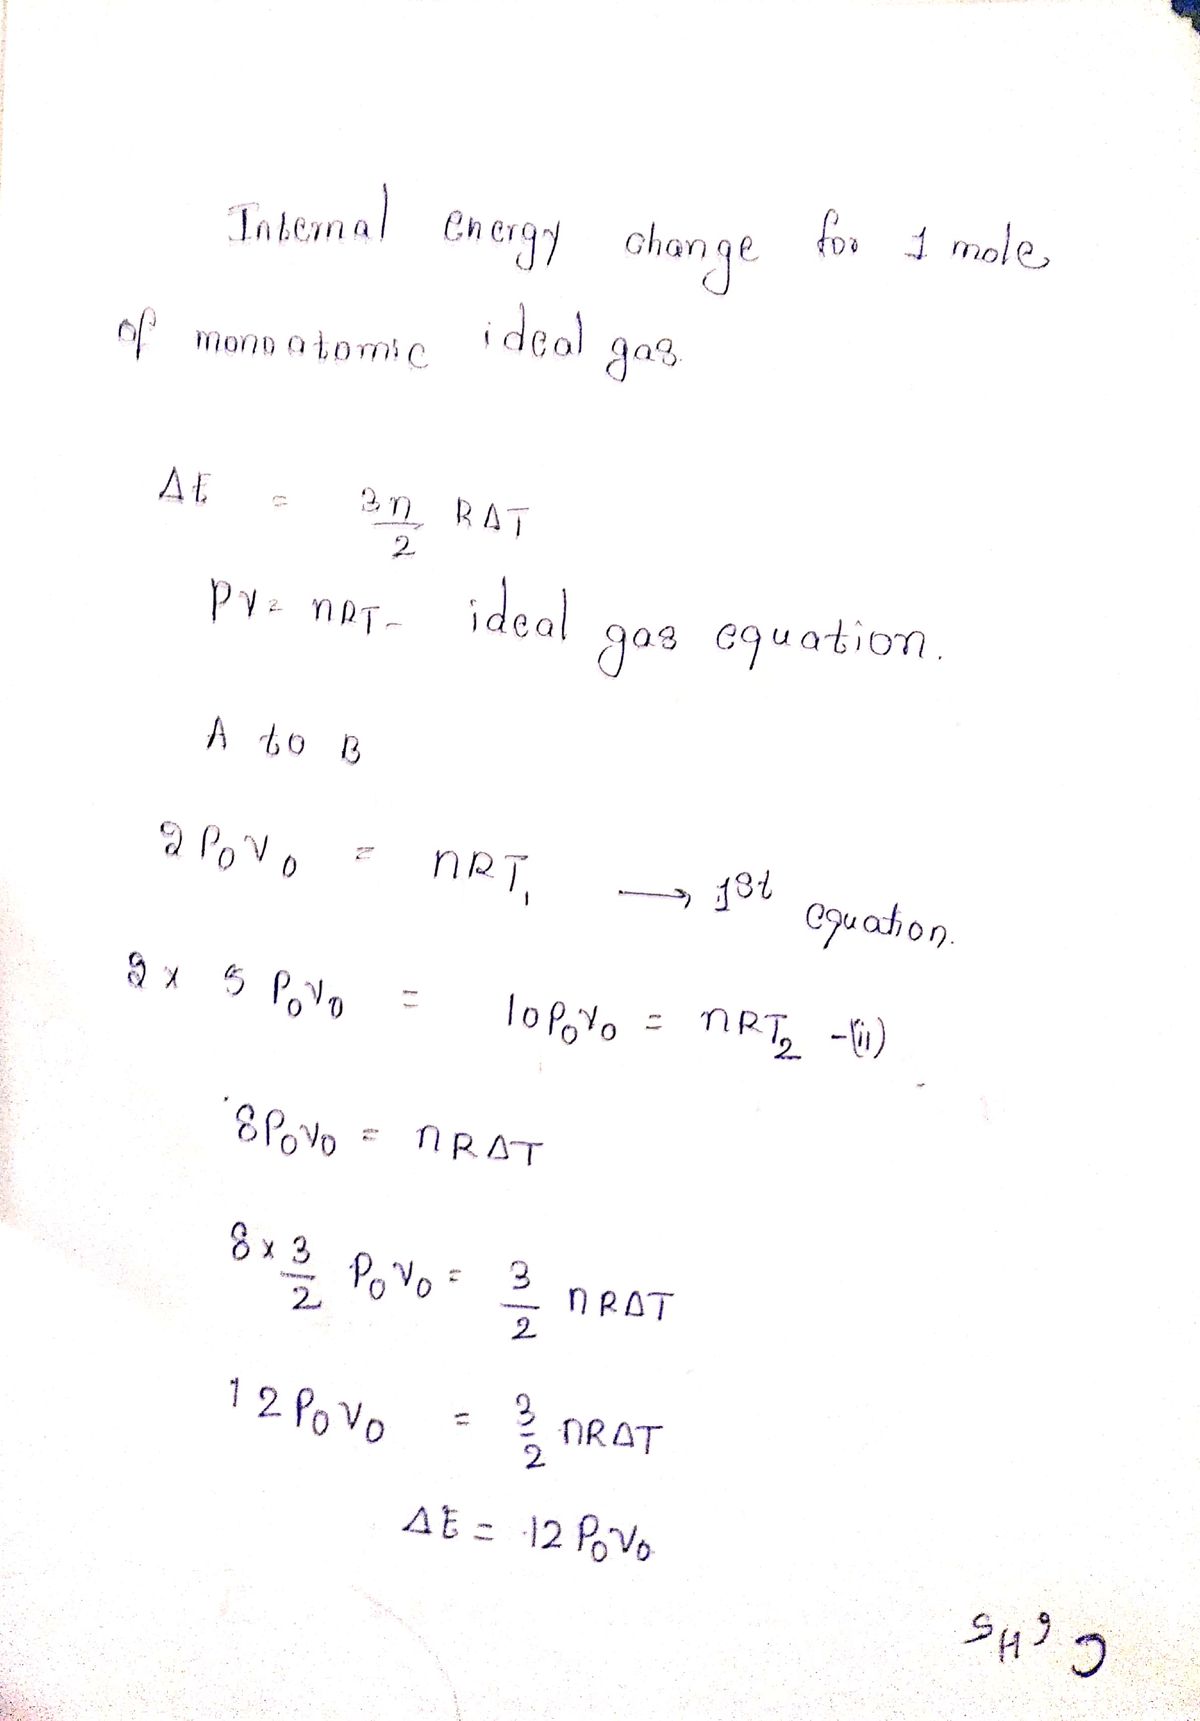 Internal energy change for 1 mole
of monoatomic ideal gas.
ΔE = 3n/2 RΔT
PV = nRT - ideal gas equation.
A to B
2P₀V₀ = nRT₁ → 1st equation.
2 x 5 P₀V₀ = 10P₀V₀ = nRT₂ -(ii)
8P₀V₀ = nRΔT
8 x 3/2 P₀V₀ = 3/2 nRΔT
12P₀V₀ = 3/2 nRΔT
ΔE = 12P₀V₀
C₆H₅